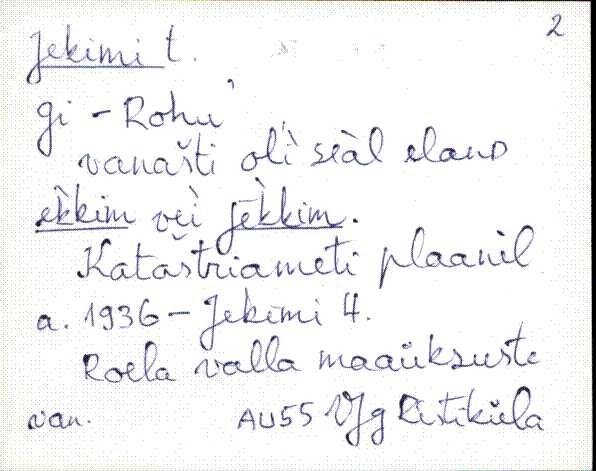 2
Jekimi t.
gi - Rohu
vanašti oĺì seàl elanD
èkkim vèì jèkkim.
Katastriameti plaanil
a. 1936 - Jekimi 4.
Roela valla maaüksuste
van. AU55 VJg Ristiküla